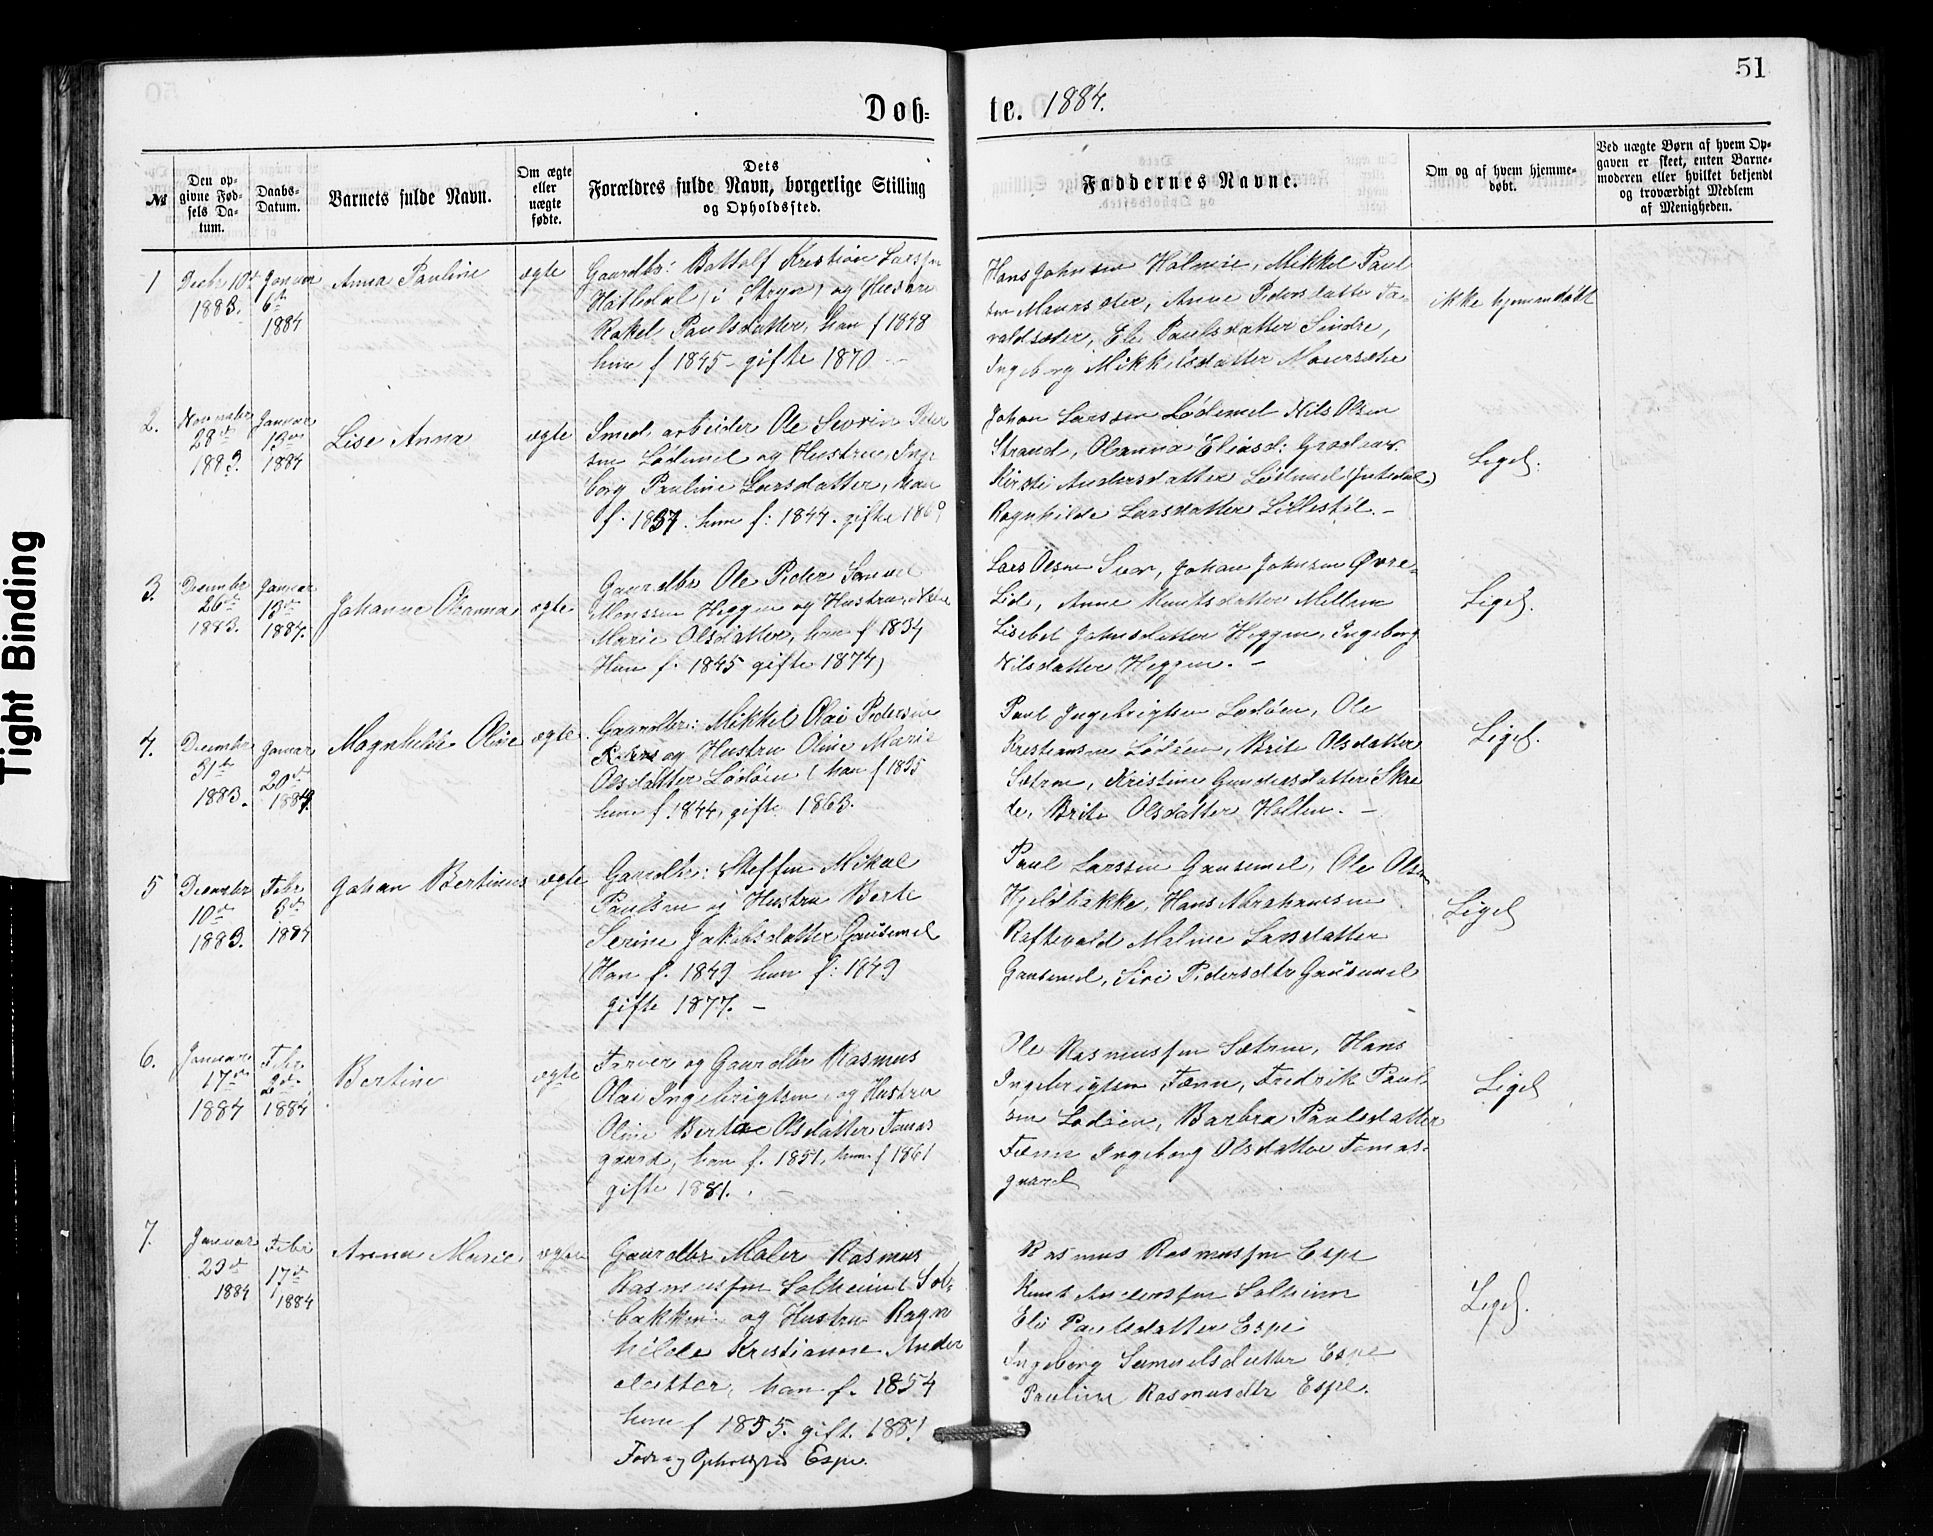 51
Døb=
te. 1884.
№
Den op-
givne Fød-
sels Da-
tum.
Daabs-
Datum.
Barnets fulde Navn.
Om ægte
eller
uægte
fødte.
Dets
Forældres fulde Navn, borgerlige Stilling
og Opholdssted.
Faddernes Navne.
Om og af hvem hjemme-
døbt.
Ved uægte Børn af hvem Op-
gaven er skeet, enten Barne-
moderen eller hvilket bekjendt
og troværdigt Medlem
af Menigheden.
1
Decbr 10de
1883.
Januar
6te
1884
Anna Pauline
ægte
Gaardbr: Kristian
(i Stryn) og Hustru
Rakel Paulsdatter, han f 1848
hun f 1845 - gifte 1870
Hans Johnsen Holmøie, Mikkel Paul
sen Maurseter, Anne Pedersdatter
Eli Paulsdatter Sindre,
Ingeborg Mikkelsdatter Maurseter
ikke hjemmedøbt
2.
Novembr
28de
1883.
Januar
13de
1884
Lise Anna
ægte
Smed, arbeider Ole Sevrin Peder
sen Lødemel og Hustru, Inge
borg Pauline Larsdatter, han
f. 1837. hun f: 1844. gifte
Johan Larssen Lødemel Nils Olsen
Strand, Olanna Eliasd:
Kirsti Andersdatter Lødemel
Ragnhilde Larsdatter Lillestøl. -
Ligel.
3.
Decembr
26de
1883.
Januar
13de
1884.
Johanne Olianna
ægte
Gaardbr Ole Peder Samuel
Monssen Heggen og Hustru,
Marie Olsdatter, han f 1834
Hun f. 1845 gifte 1874)
Lars Olsen Johan Johnsen Øvre-
Lid, Anne Knutsdatter Mellem
Lisebet Johnsdatter Heggen, Ingeborg
Nilsdatter Heggen. -
Ligel.
4.
Decembr
31te
1883.
Januar
20de
1884.
Magnhilde Oline
ægte
Gaardbr: Mikkel Olai Pedersen
og Hustru Oline Marie
Olsdatter Lødøen (han f 1835
hun f. 1844, gifte 1863.
Paul Ingebrigtsen Lødøen, Ole
Kristiansen Lødøen, Brite Olsdatter
Sætren, Kristine Gundersdatter Skre
de, Brite Olsdatter Hollen. -
Ligel.
5
Decembr
10de
1883.
Febr
3de
1884
Johan Bertinus
ægte
Gaardbr: Steffen Mikal
Paulsen og Hustru Berte
Serine Jakobsdatter Gausemel
(Han f. 1849 hun f: 1849
gifte 1877. -
Paul Larssen Gausemel, Ole Olsen
Hjeldhakke, Hans Abrahamsen
Raftevold Maline Larsdatter
Gausemel, Siri Pedersdtr Gausemel
Ligel
6.
Januar
17de
1884
Febr
1884
Bertine
ægte
Farver og Gaardbr Rasmus
Olai Ingebrigtsen, og Hustru
Oline Berta Olsdatter Tomas
gaard, han f. 1851, hun f 1861
gifte 1881. -
Ole Rasmussen Sætren, Hans
Ingebrigtsen Tænn, Fredrik Paul
sen Lødøen, Barbra Paulsdatter
Tænn Ingeborg Olsdatter Tomas-
gaard
Ligel
7.
Januar
23de
1884
Febr
17de
1884
Anna Marie
ægte
Gaardbr Maler Rasmus
Rasmussen Solheim Sol-
bakken og Hustru Ragn
hilde Kristianne Anders
datter, han f. 1854
hun f 1855. gift. 1881
Espe.
Rasmus Rasmussen Espe
Knut Anderssen Solheim
Eli Paulsdatter Espe
Ingeborg Samuelsdatter Espe
Pauline Rasmusdtr Espe.
Ligel.
Tight Binding